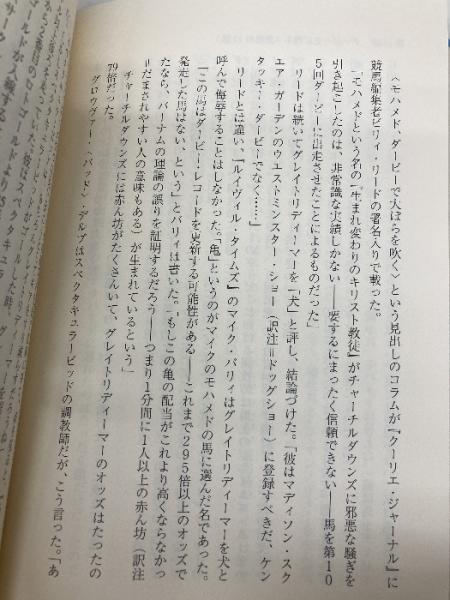 〈モハメド、ダービーで大ぼらを吹く〉という見出しのコラムが『クーリエ・ジャーナル』に
競馬編集者ビリィ・リードの署名入りで載った。
「モハメドという名の『生まれ変わりのキリスト教徒』がチャーチルダウンズに邪悪な騒ぎを
引き起こしたのは、非常識な実績しかない――要するにまったく信頼できない――馬を第１０
５回ダービーに出走させたことによるものだった」
リードは続いてグレイトリディーマーを「犬」と評し、結論づけた。「彼はマディソン・スク
エア・ガーデンのウエストミンスター・ショー（訳注＝ドッグショー）に登録すべきだ、ケン
タッキー・ダービーでなく……」
リードとは違い、『ルイヴィル・タイムズ』のマイク・バリィはグレイトリディーマーを犬と
呼んで侮辱することはしなかった。「亀」というのがマイクのモハメドの馬に選んだ名であった。
「この馬はダービー・レコードを更新する可能性がある――これまで２９５倍以上のオッズで
発走した馬はない、という」とバリィは書いた。「もしこの亀の配当がこれより高くならなかっ
たなら、バーナムの理論の誤りを証明するだろう――つまり１分間に１人以上の赤ん坊（訳注
＝だまされやすい人の意味もある）が生まれているという」
チャーチルダウンズには赤ん坊がたくさんいて、グレイトリディーマーのオッズはたったの
７９倍だった。
グロウヴァー・"バッド"・デルプはスペクタキュラービッドの調教師だが、こう言った。「あ